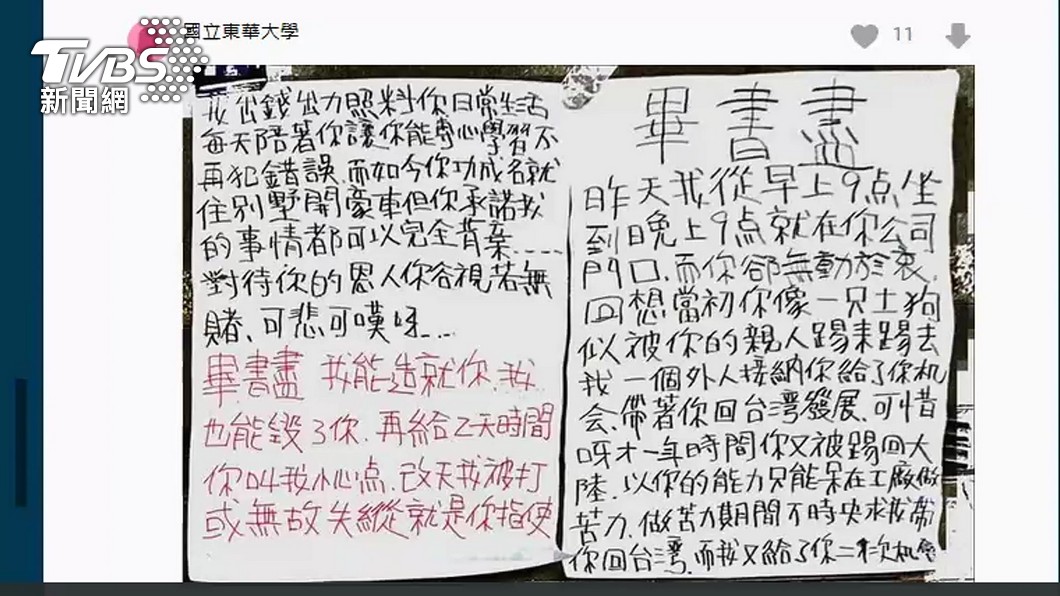 TVBS
新聞網
國立東華大學
11
畢書盡
昨天我從早上9点坐
到晚上9点就在你公司
門口.而你卻無動於衷.
回想當初你像一只土狗
似被你的親人踢來踢去
我一個外人接納你給了你机
会.帶著你回台灣發展.可惜
呀才一年時間你又被踢回大
陸.以你的能力只能呆在工廠做
苦力.做苦力期間不時央求我帶
你回台灣.而我又給了你二次机會
我出錢出力照料你日常生活
每天陪著你讓你能專心學習不
再犯錯誤.而如今你功成名就
住別墅開豪車但你承諾我
的事情都可以完全背棄......
對待你的恩人你谷視若無
賭、可悲可嘆呀....
畢書盡 我能造就你.我
也能毀了你.再給2天時間
你叫我小心点.改天我被打
或無故失縱就是你指使